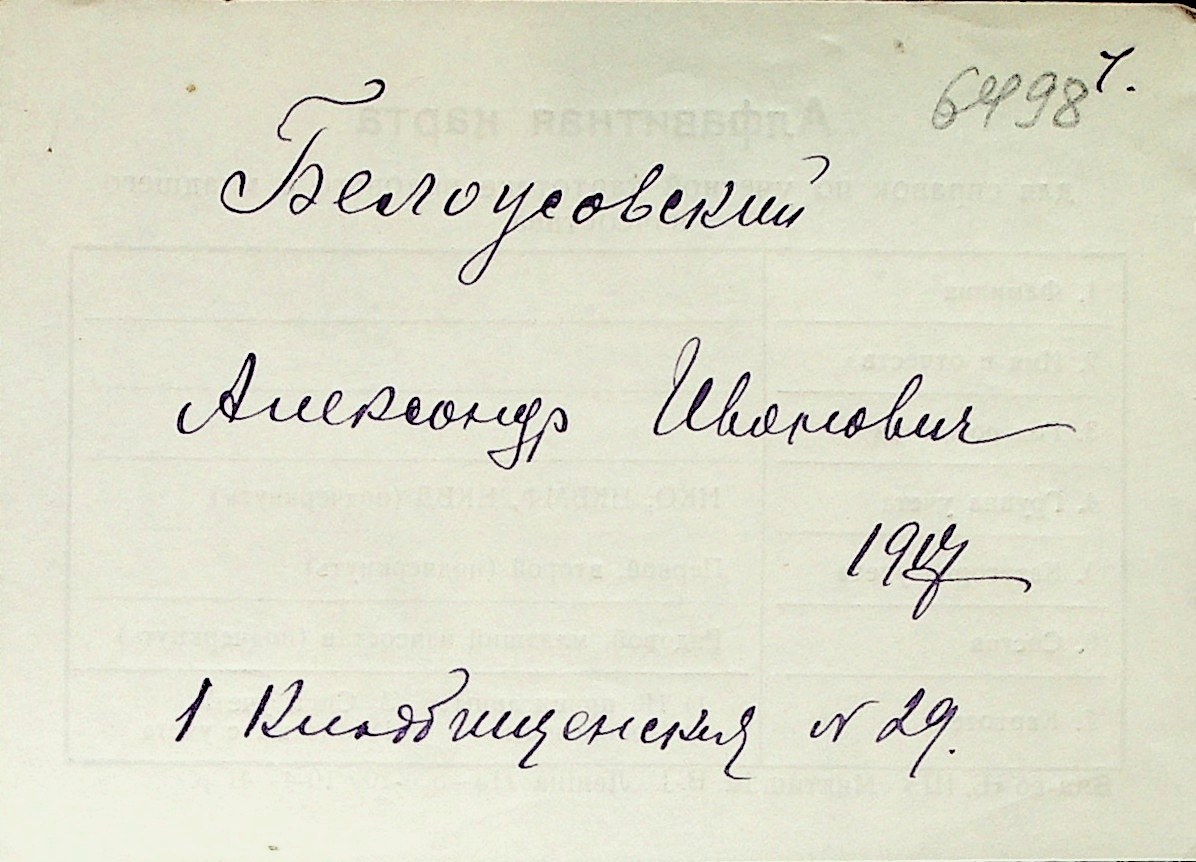 6498
Белоусовский
Александр Иванович
1917
1 Кладбищенская N 29.